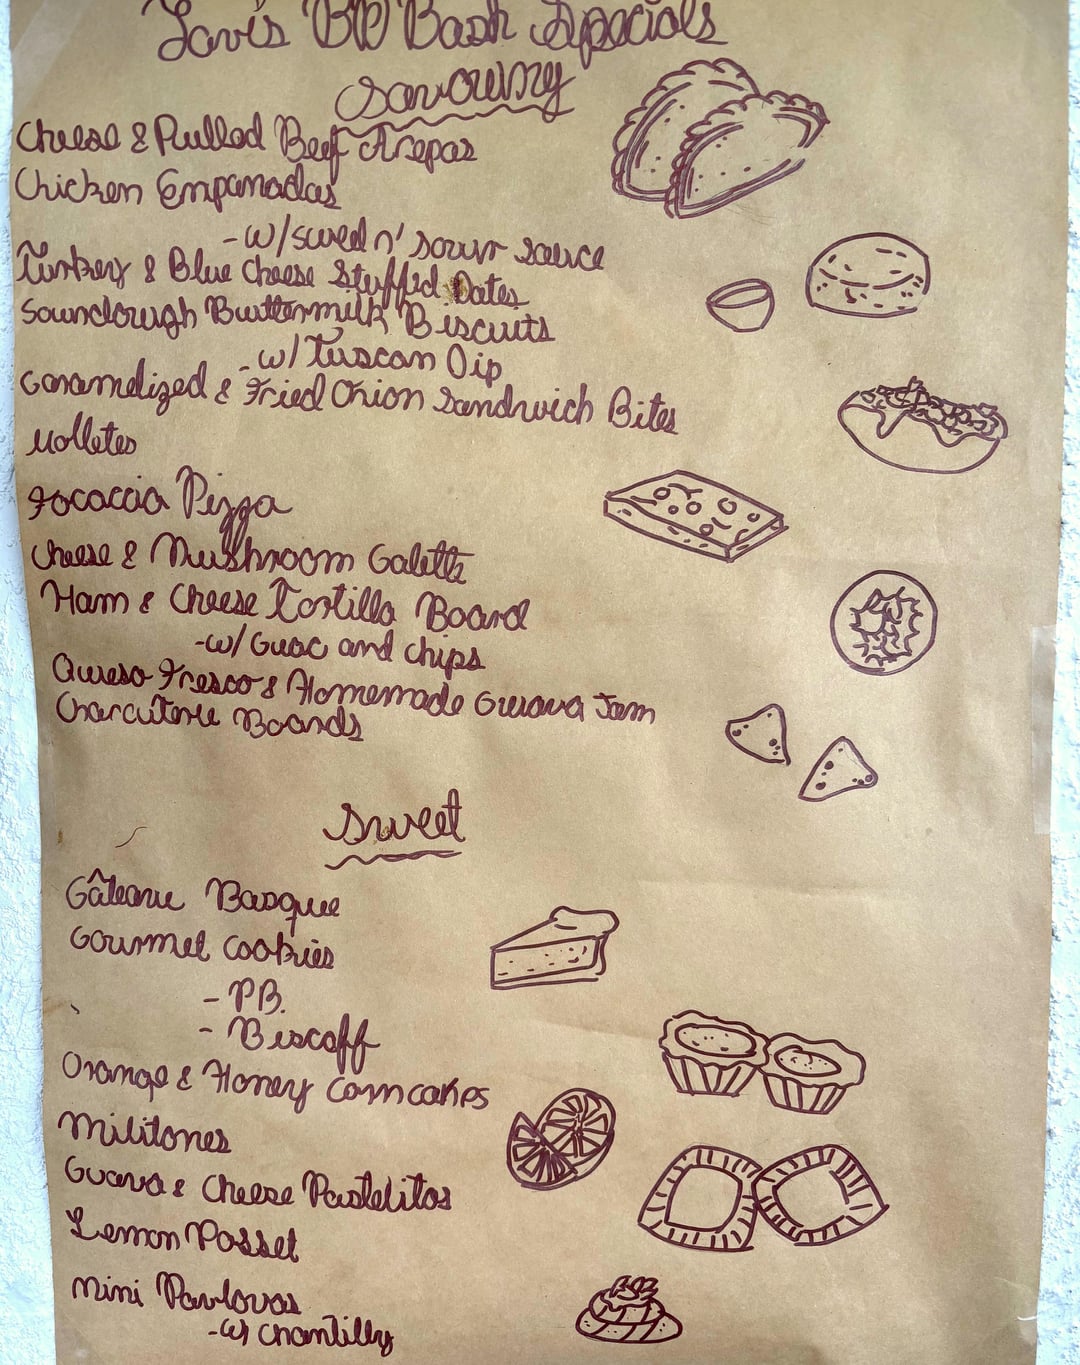 Yavi's BD Bash Specials
Savoury
Cheese & Pulled Beef Arepas
Chicken Empanadas
- w/ sweet n' sour sauce
Turkey & Blue Cheese Stuffed Dates
Sourdough Buttermilk Biscuits
- w/ Tuscan Dip
Caramelized & Fried Onion Sandwich Bites
Molletes
Focaccia Pizza
Cheese & Mushroom Galette
Ham & Cheese Tortilla Board
- w/ Guac and chips
Queso Fresco & Homemade Guava Jam
Charcuterie Boards
Sweet
Gâteau Basque
Gourmet Cookies
- P.B.
- Biscoff
Orange & Honey Corncakes
Militones
Guava & Cheese Pastelitos
Lemon Posset
Mini Pavlovas
- w/ Chantilly